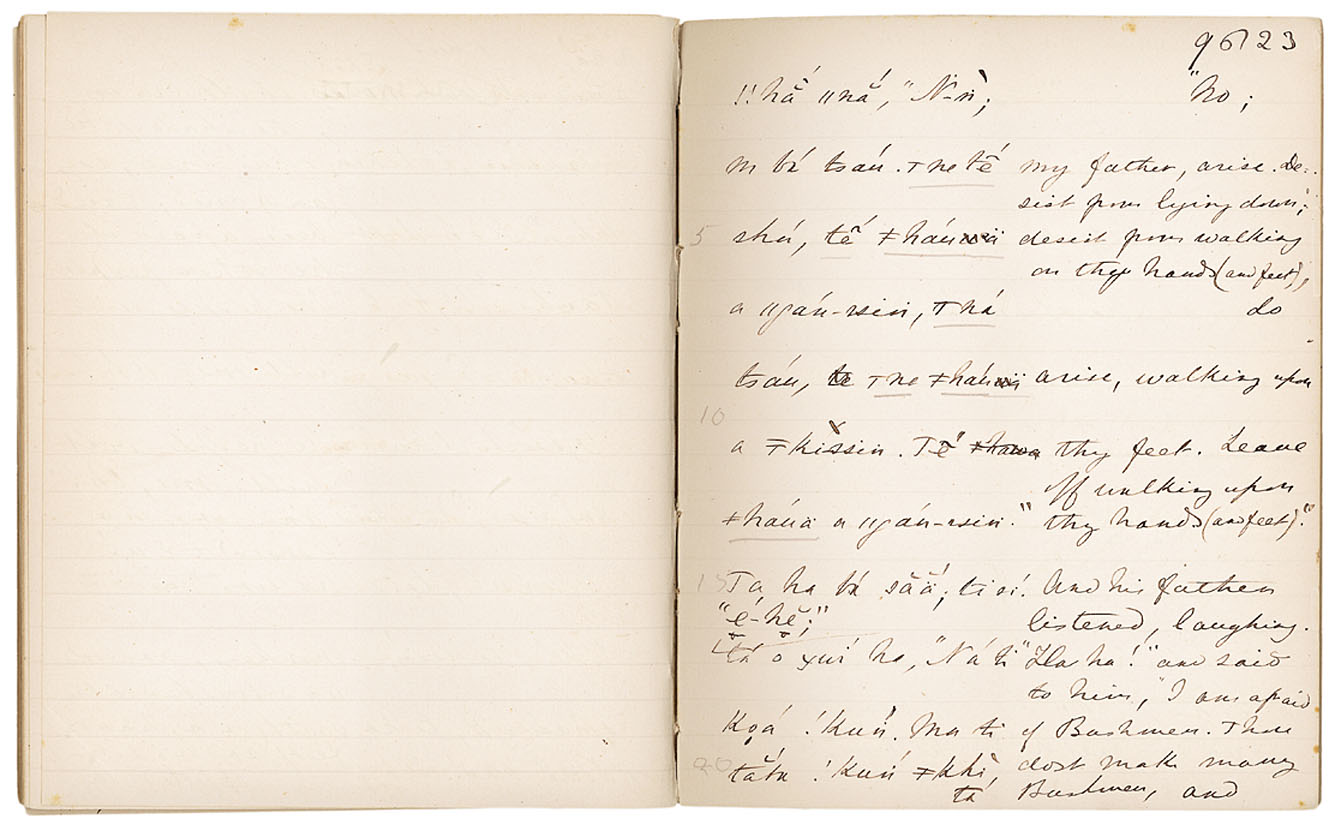 9623
!! hắ ıı ná, "N-n;
"No;
m bá tsáu. ꞇ ne tẽ́ my father, arise. De-
sist from lying down;
5 shú, tẽ́ ǂháuwä desist from walking
on thy hands (and feet),
a ıı gáu-rsin, ꞇ ná do
tsáu, ꞇ ne ǂháu arise, walking upon
10
a ǂkissin. Tẽ́ thy feet. Leave
off walking upon
ǂháuä a ıı gáu-rsin." thy hands (and feet)."
15 Ta ha bá sãá, ti sí. And his father
"é-hĕ;" listened, laughing.
tá o χuí ha, "Ná ti "Ha ha!" and said
to him, "I am afraid
Koá !Kuń. Ma ti of Bushmen. Thou
20 tǎta !Kuń ǂkhì, dost make many
tá Bushmen, and